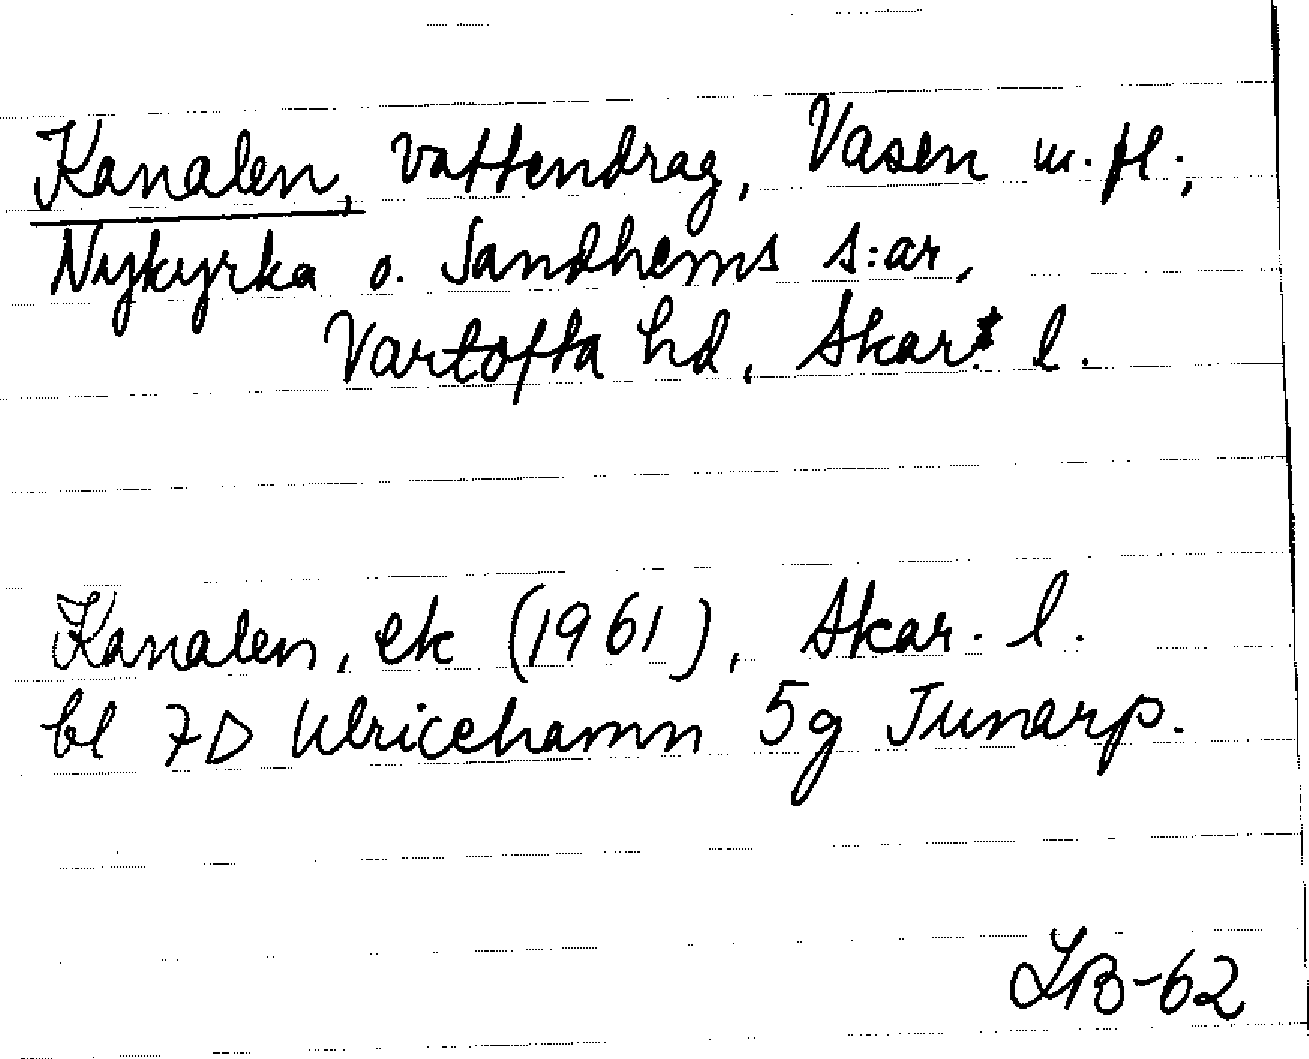 Kanalen, vattendrag, Vasen m. fl.;
Nykyrka o. Sandhems s:ar,
Vartofta hd, Skar. l.
Kanalen, ek (1961), Skar. l.
bl 7D Ulricehamn 5g Junarp.
LB-62